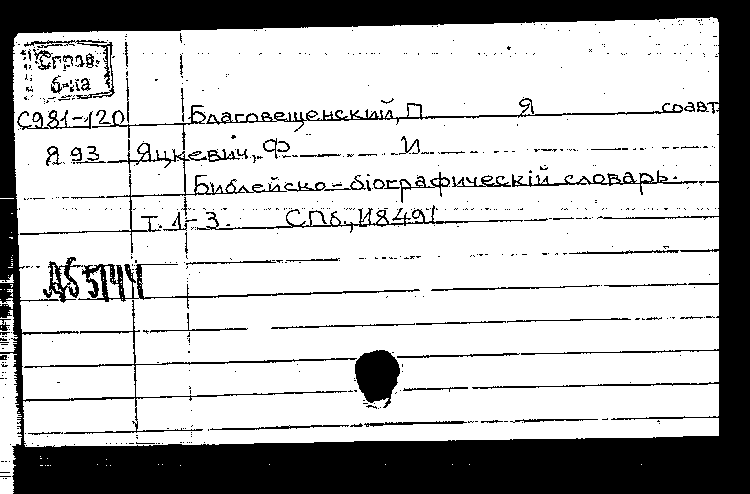 Справ.
б-ка
С981-120 Благовещенский, П Я соавт
Я 93 Яцкевич, Ф И
Библейско-біографическій словарь.
Т. 1-3. СПб.,
Аб 5144